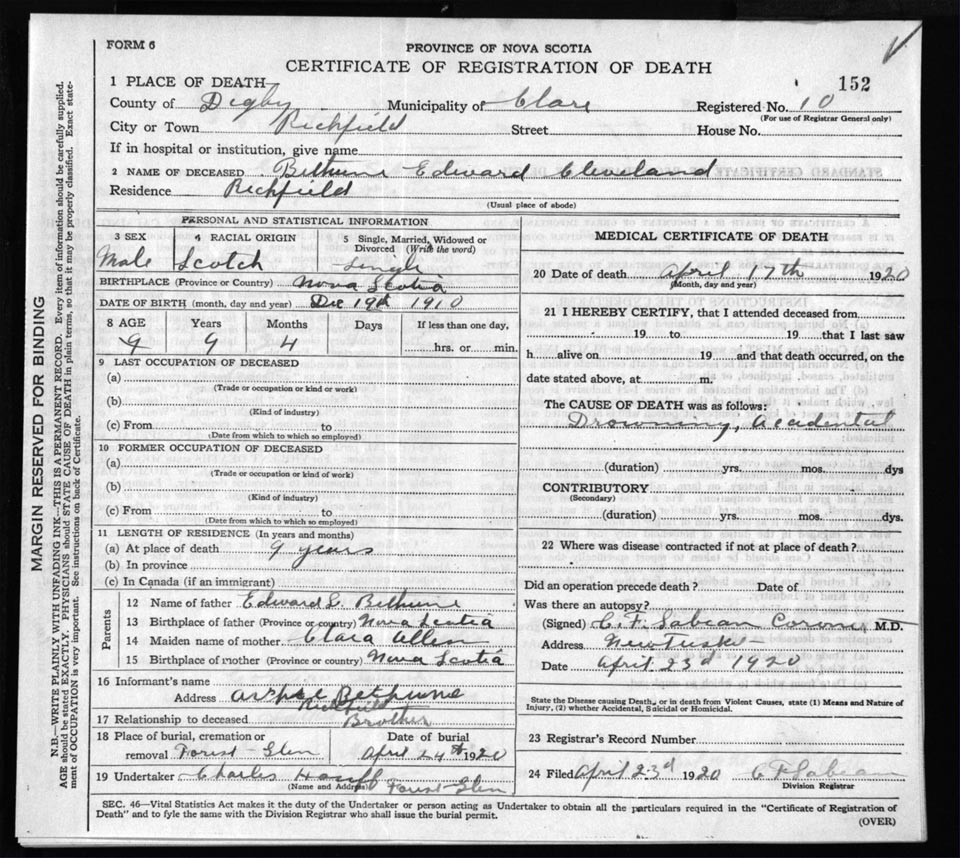 FORM 6
PROVINCE OF NOVA SCOTIA
CERTIFICATE OF REGISTRATION OF DEATH
152
1 PLACE OF DEATH
County of Digby Municipality of Clare Registered No. 10
(For use of Registrar General only)
City or Town Richfield Street House No.
If in hospital or institution, give name
2 NAME OF DECEASED Bethune Edward Cleveland
Residence Richfield
(Usual place of abode)
PERSONAL AND STATISTICAL INFORMATION
3 SEX 4 RACIAL ORIGIN 5 Single, Married, Widowed or Divorced (Write the word)
Male Scotch Single
BIRTHPLACE (Province or Country) Nova Scotia
DATE OF BIRTH (month, day and year) Dec 19th 1910
8 AGE Years Months Days If less than one day,
9 9 4 hrs. or min.
9 LAST OCCUPATION OF DECEASED
(a)
(Trade or occupation or kind or work)
(b)
(Kind of industry)
(c) From to
(Date from which to which so employed)
10 FORMER OCCUPATION OF DECEASED
(a)
(Trade or occupation or kind of work)
(b)
(Kind of industry)
(c) From to
(Date from which to which so employed)
11 LENGTH OF RESIDENCE (In years and months)
(a) At place of death 9 years
(b) In province
(c) In Canada (if an immigrant)
Parents
12 Name of father Edward L. Bethune
13 Birthplace of father (Province or country) Nova Scotia
14 Maiden name of mother Clara Allen
15 Birthplace of mother (Province or country) Nova Scotia
16 Informant's name
Address Bethune
Richfield
17 Relationship to deceased Brother
18 Place of burial, cremation or removal Forest-Glen
Date of burial
April 24th 1920
19 Undertaker Charles
(Name and Address) Forest-Glen
MEDICAL CERTIFICATE OF DEATH
20 Date of death April 17th 1920
(Month, day and year)
21 I HEREBY CERTIFY, that I attended deceased from
19 to 19 that I last saw
h alive on 19 and that death occurred, on the
date stated above, at m.
The CAUSE OF DEATH was as follows:
Drowning, Accidental
(duration) yrs. mos. dys
CONTRIBUTORY
(Secondary)
(duration) yrs. mos. dys.
22 Where was disease contracted if not at place of death?
Did an operation precede death? Date of
Was there an autopsy?
(Signed) C. F. Sabean Coroner, M.D.
Address New Tusket
Date April 23d 1920
State the Disease causing Death, or in death from Violent Causes, state (1) Means and Nature of
Injury, (2) whether Accidental, Suicidal or Homicidal.
23 Registrar's Record Number
24 Filed April 23d 1920 C F Sabean
Division Registrar
SEC. 46—Vital Statistics Act makes it the duty of the Undertaker or person acting as Undertaker to obtain all the particulars required in the "Certificate of Registration of
Death" and to fyle the same with the Division Registrar who shall issue the burial permit.
(OVER)
MARGIN RESERVED FOR BINDING
N.B.—WRITE PLAINLY WITH UNFADING INK—THIS IS A PERMANENT RECORD. Every item of information should be carefully supplied.
AGE should be stated EXACTLY. PHYSICIANS should STATE CAUSE OF DEATH in plain terms, so that it may be properly classified. Exact state-
ment of OCCUPATION is very important. See instructions on back of Certificate.